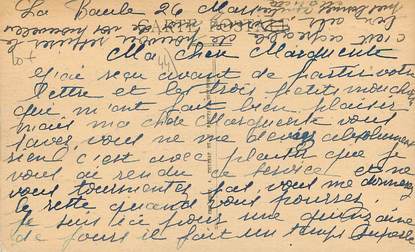 La Baule 26 Mars
CARTE POSTALE
Ma Chère Marguerite
J'ai reçu avant de partir votre
lettre et les trois petits mouchoirs
qui m'ont fait bien plaisir
mais ma chère Marguerite vous
savez vous ne me devez absolument
rien c'est avec plaisir que je
vous ai rendu ce service et ne
vous tourmentez pas, vous me donnerez
le reste quand vous pourrez,
je suis ici pour une quinzaine
de jours il fait un temps superbe
c'est agréable de
de vos nouvelles